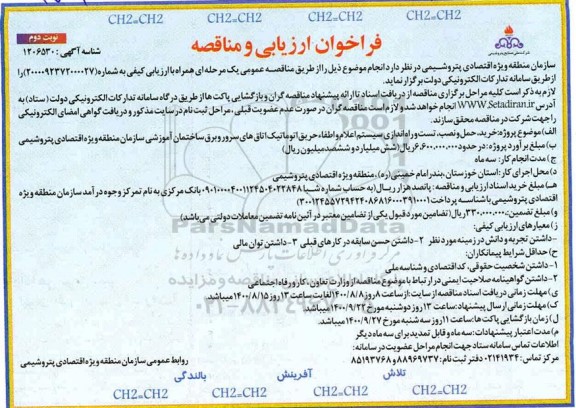 CH2=CH2 CH2=CH2 CH2=CH2 CH2=CH2
نوبت دوم
فراخوان ارزیابی و مناقصه
شناسه آگهی: ۱۲۰۶۵۳۰
شرکت ملی صنایع پتروشیمی
سازمان منطقه ویژه اقتصادی پتروشیمی در نظر دارد انجام موضوع ذیل را از طریق مناقصه عمومی یک مرحله ای همراه با ارزیابی کیفی به شماره (۲۰۰۰۰۹۲۳۷۲۰۰۰۰۲۷) را
از طریق سامانه تدارکات الکترونیکی دولت برگزار نماید.
لازم به ذکر است کلیه مراحل برگزاری مناقصه از دریافت اسناد تا ارائه پیشنهاد مناقصه گران و بازگشایی پاکت ها از طریق درگاه سامانه تدارکات الکترونیکی دولت (ستاد) به
آدرس WWW.Setadiran.ir انجام خواهد شد و لازم است مناقصه گران در صورت عدم عضویت قبلی، مراحل ثبت نام در سایت مذکور و دریافت گواهی امضای الکترونیکی
را جهت شرکت در مناقصه محقق سازند.
الف) موضوع پروژه: خرید، حمل و نصب، تست و راه اندازی سیستم اعلام و اطفاء حریق اتوماتیک اتاق های سرور و برق ساختمان آموزشی سازمان منطقه ویژه اقتصادی پتروشیمی
ب) مبلغ برآورد پروژه: در حدود ۶.۶۰۰.۰۰۰.۰۰۰ ریال (شش میلیارد و ششصد میلیون ریال)
ج) مدت انجام کار: سه ماه
د) محل اجرای کار: استان خوزستان، بندر امام خمینی (ره)، منطقه ویژه اقتصادی پتروشیمی
هـ) مبلغ خرید اسناد ارزیابی و مناقصه: پانصد هزار ریال (به حساب شماره شبا بانک مرکزی به نام تمرکز وجوه درآمد سازمان منطقه ویژه
اقتصادی پتروشیمی با شناسه پرداخت
و) مبلغ تضمین: ۳۳۰.۰۰۰.۰۰۰ ریال (تضامین مورد قبول یکی از تضامین معتبر در آئین نامه تضمین معاملات دولتی می باشد)
ز) معیارهای ارزیابی کیفی:
-داشتن تجربه و دانش در زمینه مورد نظر ۲-داشتن حسن سابقه در کارهای قبلی ۳-داشتن توان مالی
ح) حداقل شرایط پیمانکاران:
۱-داشتن شخصیت حقوقی، کد اقتصادی و شناسه ملی
۲-داشتن گواهینامه صلاحیت ایمنی در ارتباط با موضوع مناقصه از وزارت تعاون، کار و رفاه اجتماعی
ی) مهلت زمانی دریافت اسناد مناقصه از سایت: از ساعت ۸ روز ۱۴۰۰/۸/۸ لغایت ساعت ۱۳ روز ۱۴۰۰/۸/۱۵ میباشد.
ک) مهلت زمانی ارسال پیشنهاد: ساعت ۱۳ روز دوشنبه مورخ ۱۴۰۰/۹/۲۲ میباشد.
ل) زمان بازگشایی پاکت ها: ساعت ۱۱ روز سه شنبه مورخ ۱۴۰۰/۹/۲۷ میباشد.
م) مدت اعتبار پیشنهادات: سه ماه و قابل تمدید برای سه ماه دیگر
اطلاعات تماس سامانه ستاد جهت انجام مراحل عضویت در سامانه:
مرکز تماس: ۰۲۱۴۱۹۳۴ دفتر ثبت نام: ۸۸۹۶۹۷۳۷ و ۸۵۱۹۳۷۶۸
روابط عمومی سازمان منطقه ویژه اقتصادی پتروشیمی
تلاش آفرینش بالندگی
CH2=CH2 CH2=CH2 CH2=CH2 CH2=CH2
ParsNamadData